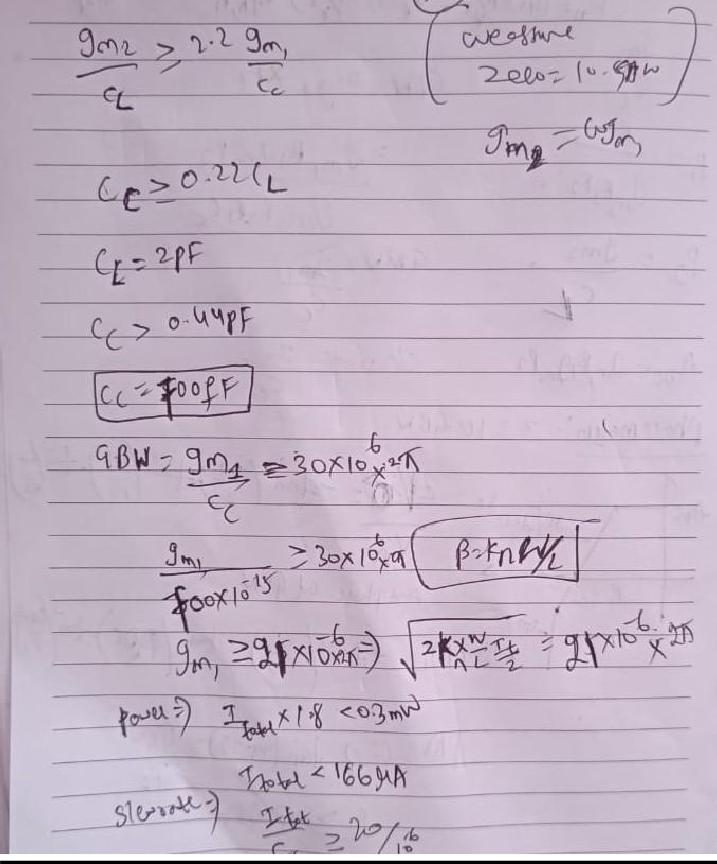 gm2/CL ≥ 2.2 gm1/Cc
(
zero = 10.
)
gm2 = 
Cc ≥ 0.22CL
CL = 2pF
Cc > 0.44pF
Cc = 700fF
GBW = gm1/Cc = 30×10^6×2π
gm1/700×10^-15 ≥ 30×10^6×π β=KnW/L
gm1 ≥ 21×10^-6×2π ⇒ √(2Kn×W/L It/2) = 21×10^-6×2π
power ⇒ Itotal×1.8 <0.3mW
Itotal < 166μA
Slewrate ⇒ Itot/C ≥ 20/10^-6